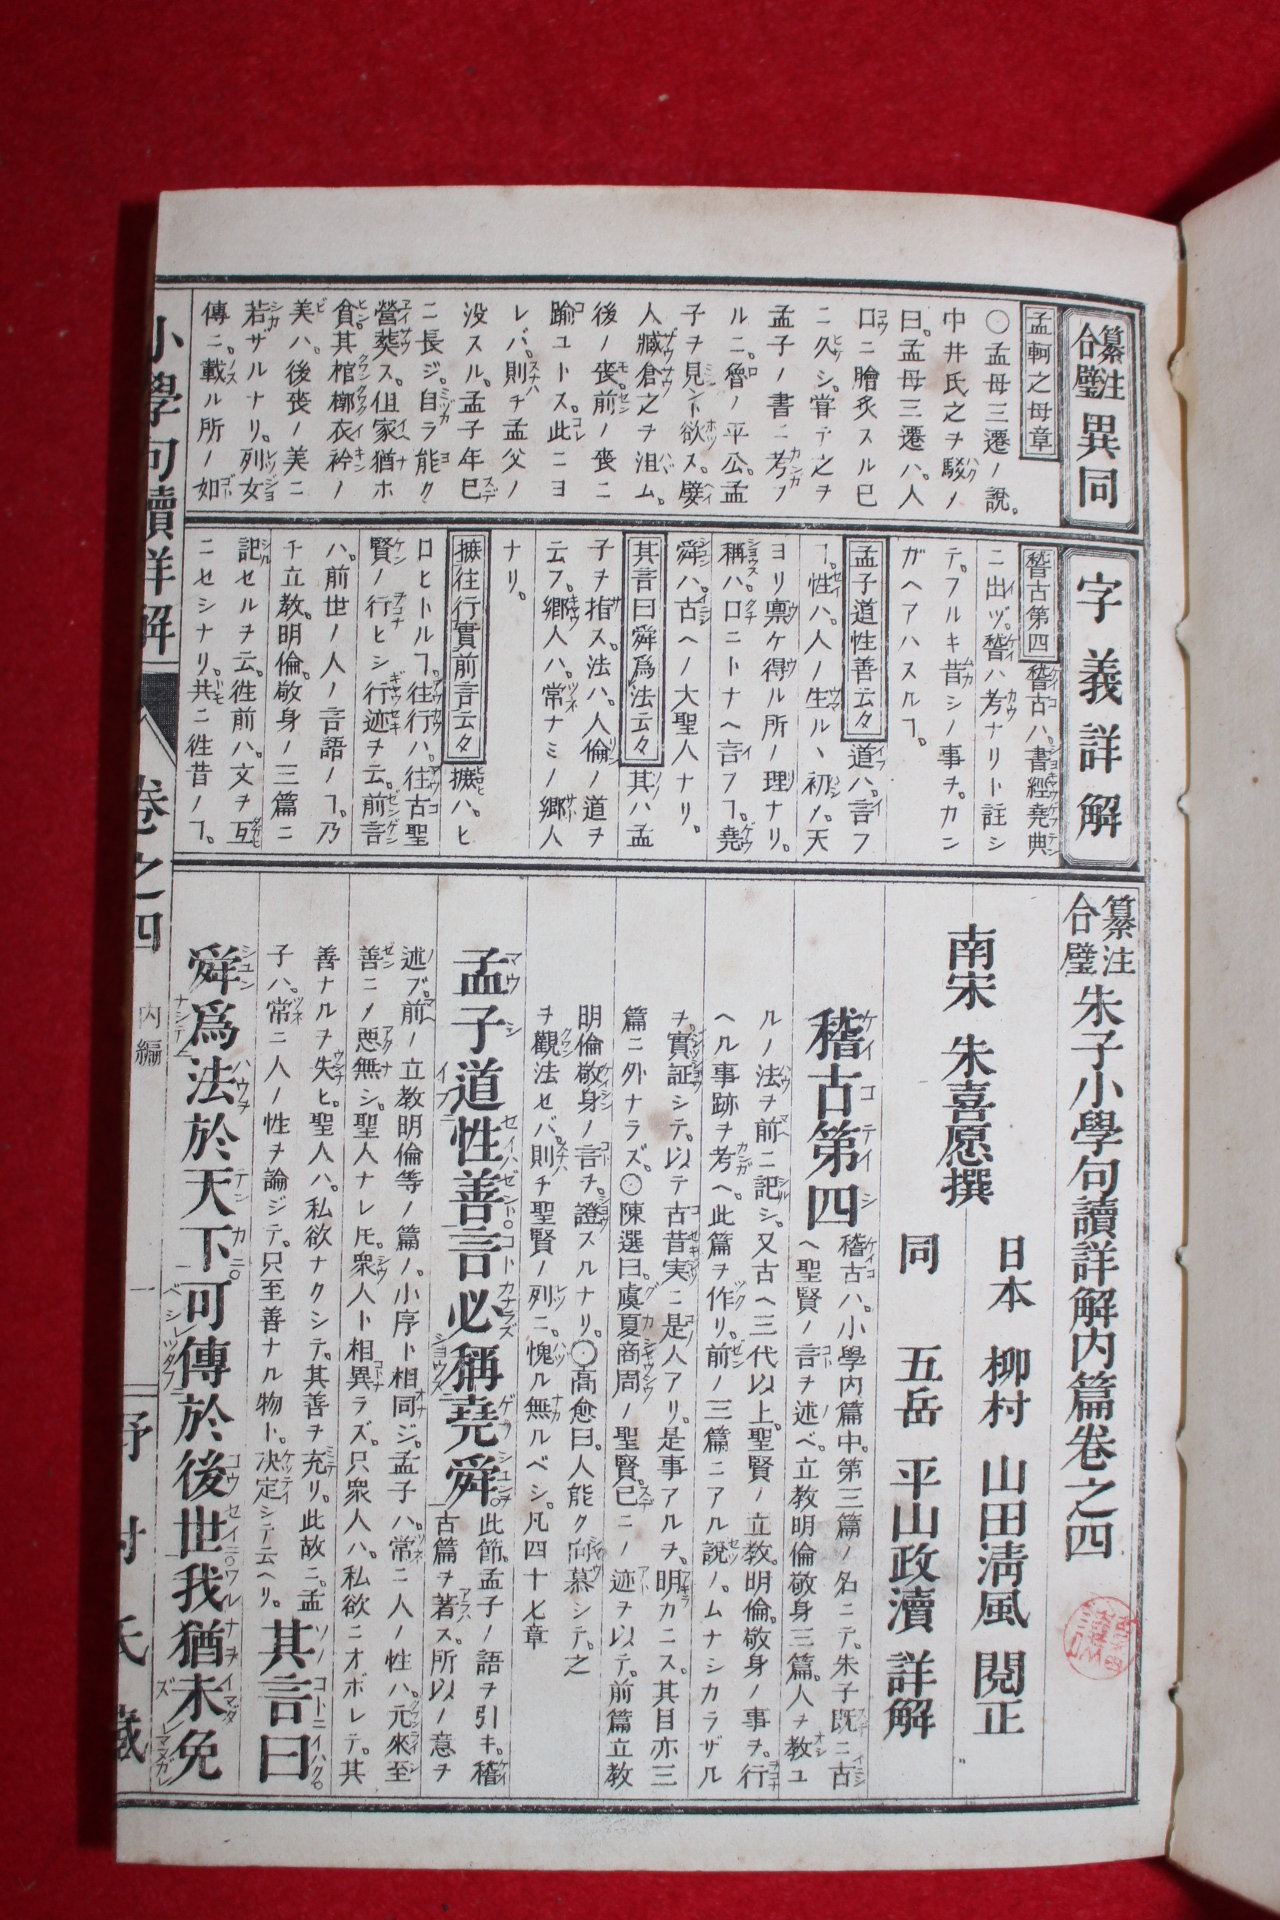 纂注合璧異同
孟軻之母章
〇孟母三遷ノ說。
中井氏之ヲ駁ノ
曰。孟母三遷ハ。人
口ニ膾炙スル已
ニ久シ。甞テ之ヲ
孟子ノ書ニ考フ
ルニ。魯ノ平公。孟
子ヲ見ント欲ス。嬖
人臧倉之ヲ沮ム。
後ノ喪前ノ喪ニ
踰ユトス。此ニヨ
レバ。則チ孟父ノ
没スル。孟子年已
ニ長ジ。自ラ能ク
營葬ス。但家猶ホ
貧。其棺槨衣衿ノ
美ハ。後喪ノ美ニ
若ザルナリ。列女
傳ニ。載ル所ノ如
字義詳解
稽古第四 稽古ハ。書經堯典
ニ出ヅ。稽ハ考ナリト註シ
テ。フルキ昔シノ事ヲ。カン
ガヘアハスルヿ。
孟子道性善云々 道ハ。言フ
ヿ。性ハ。人ノ生ルヽ初ノ。天
ヨリ禀ケ得ル所ノ理ナリ。
稱ハ。口ニトナヘ言フヿ。堯
舜ハ。古ヘノ大聖人ナリ。
其言曰舜爲法云々 其ハ孟
子ヲ指ス。法ハ。人倫ノ道ヲ
云フ。郷人ハ。常ナミノ郷人
ナリ。
摭往行實前言云々 摭ハ。ヒ
ロヒトルヿ。往行ハ。往古聖
賢ノ行ヒシ行迹ヲ云。前言
ハ。前世ノ人ノ言語ノヿ。乃
千立教。明倫。敬身ノ三篇ニ
記セルヲ云。徃前ハ。文ヲ互
ニセシナリ。共ニ徃昔ノヿ。
纂注合璧朱子小學句讀詳解内篇卷之四
南宋 朱喜愿撰
日本 柳村 山田淸風 閲正
同 五岳 平山政瀆 詳解
稽古第四 稽古ハ。小學内篇中。第三篇ノ名ニテ。朱子既ニ古
ヘ聖賢ノ言ヲ述ベ。立教明倫敬身三篇。人ヲ教ユ
ルノ法ヲ前ニ記シ。又古ヘ三代以上。聖賢ノ立教。明倫。敬身ノ事ヲ。行
ヘル事跡ヲ考ヘ。此篇ヲ作リ。前ノ三篇ニアル說ノ。ムナシカラザル
ヲ。實証シテ。以テ古昔実ニ是人アリ。是事アルヲ。明カニス。其目亦三
篇ニ外ナラズ。〇陳選曰。虞夏商周ノ聖賢。已ニノ迹ヲ以テ。前篇立教
明倫敬身ノ言ヲ。證スルナリ。〇高愈曰。人能ク向慕シテ。之
ヲ觀法セバ。則チ聖賢ノ列ニ。愧ル無ルベシ。凡四十七章
孟子道性善言必稱堯舜 此節。孟子ノ語ヲ引キ。稽
古篇ヲ著ス。所以ノ意ヲ
述ブ。前ノ立教明倫等ノ篇ノ。小序ト相同ジ。孟子ハ。常ニ人ノ性ハ。元來至
善ニノ悪無シ。聖人ナレ𪜈。衆人ト相異ラズ。只衆人ハ。私欲ニオボレテ。其
善ナルヲ失ヒ。聖人ハ。私欲ナクシテ。其善ヲ充リ。此故ニ。孟
子ハ。常ニ人ノ性ヲ論ジテ。只至善ナル物ト。決定シテ云ヘリ。 其言曰
舜爲法於天下可傳於後世我猶未免
小學句讀詳解 卷之四 内編 一 野村氏藏